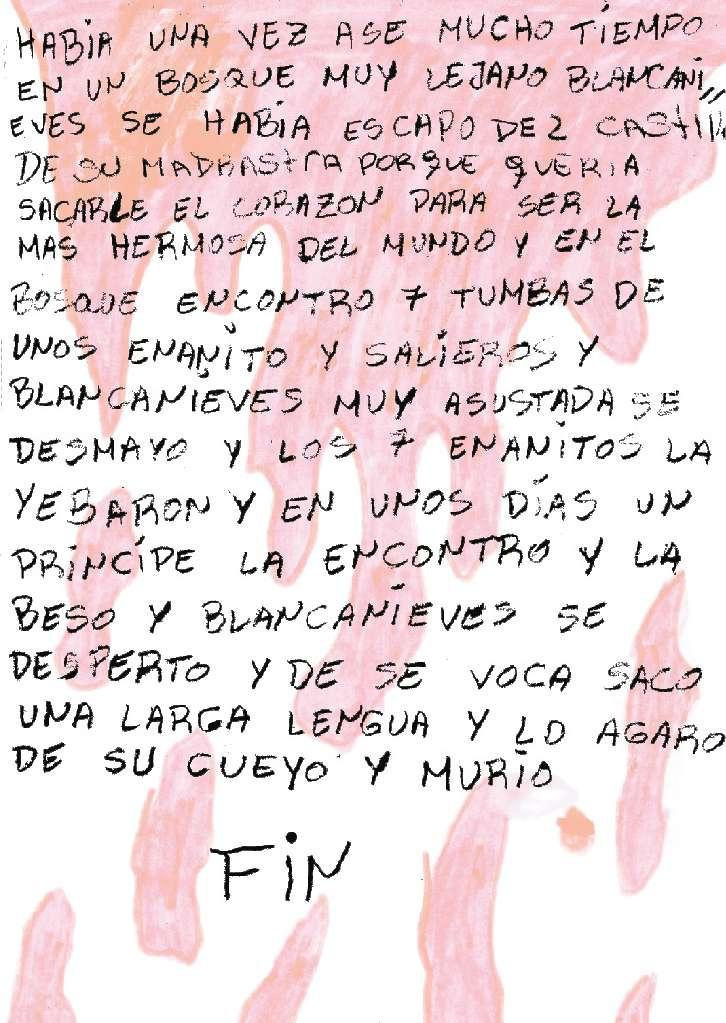 HABIA UNA VEZ ASE MUCHO TIEMPO
EN UN BOSQUE MUY LEJANO BLANCANI,,
EVES SE HABIA ESCAPO DEL CASTILLO
DE SU MADRASTRA PORQUE QUERIA
SACARLE EL CORAZON PARA SER LA
MAS HERMOSA DEL MUNDO Y EN EL
BOSQUE ENCONTRO 7 TUMBAS DE
UNOS ENANITO Y SALIEROS Y
BLANCANIEVES MUY ASUSTADA SE
DESMAYO Y LOS 7 ENANITOS LA
YEBARON Y EN UNOS DÍAS UN
PRINCIPE LA ENCONTRO Y LA
BESO Y BLANCANIEVES SE
DESPERTO Y DE SE VOCA SACO
UNA LARGA LENGUA Y LO AGARO
DE SU CUEYO Y MURIO
FIN